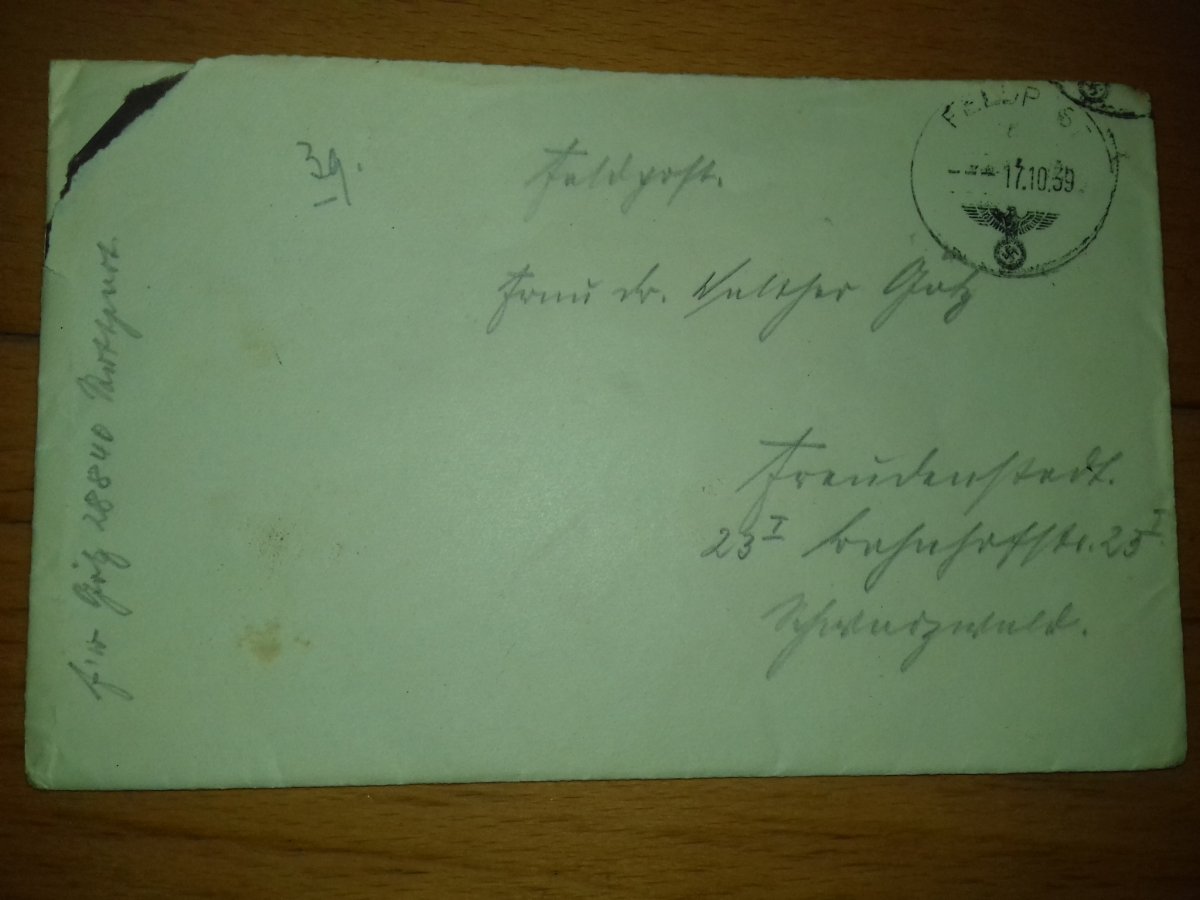 39.
Feldpost.
FELDPOST
17.10.39
Frau Dr. Walther Götz
Freudenstadt.
23 I Bahnhofstr. 25 I
Schwarzwald.
Götz 28840